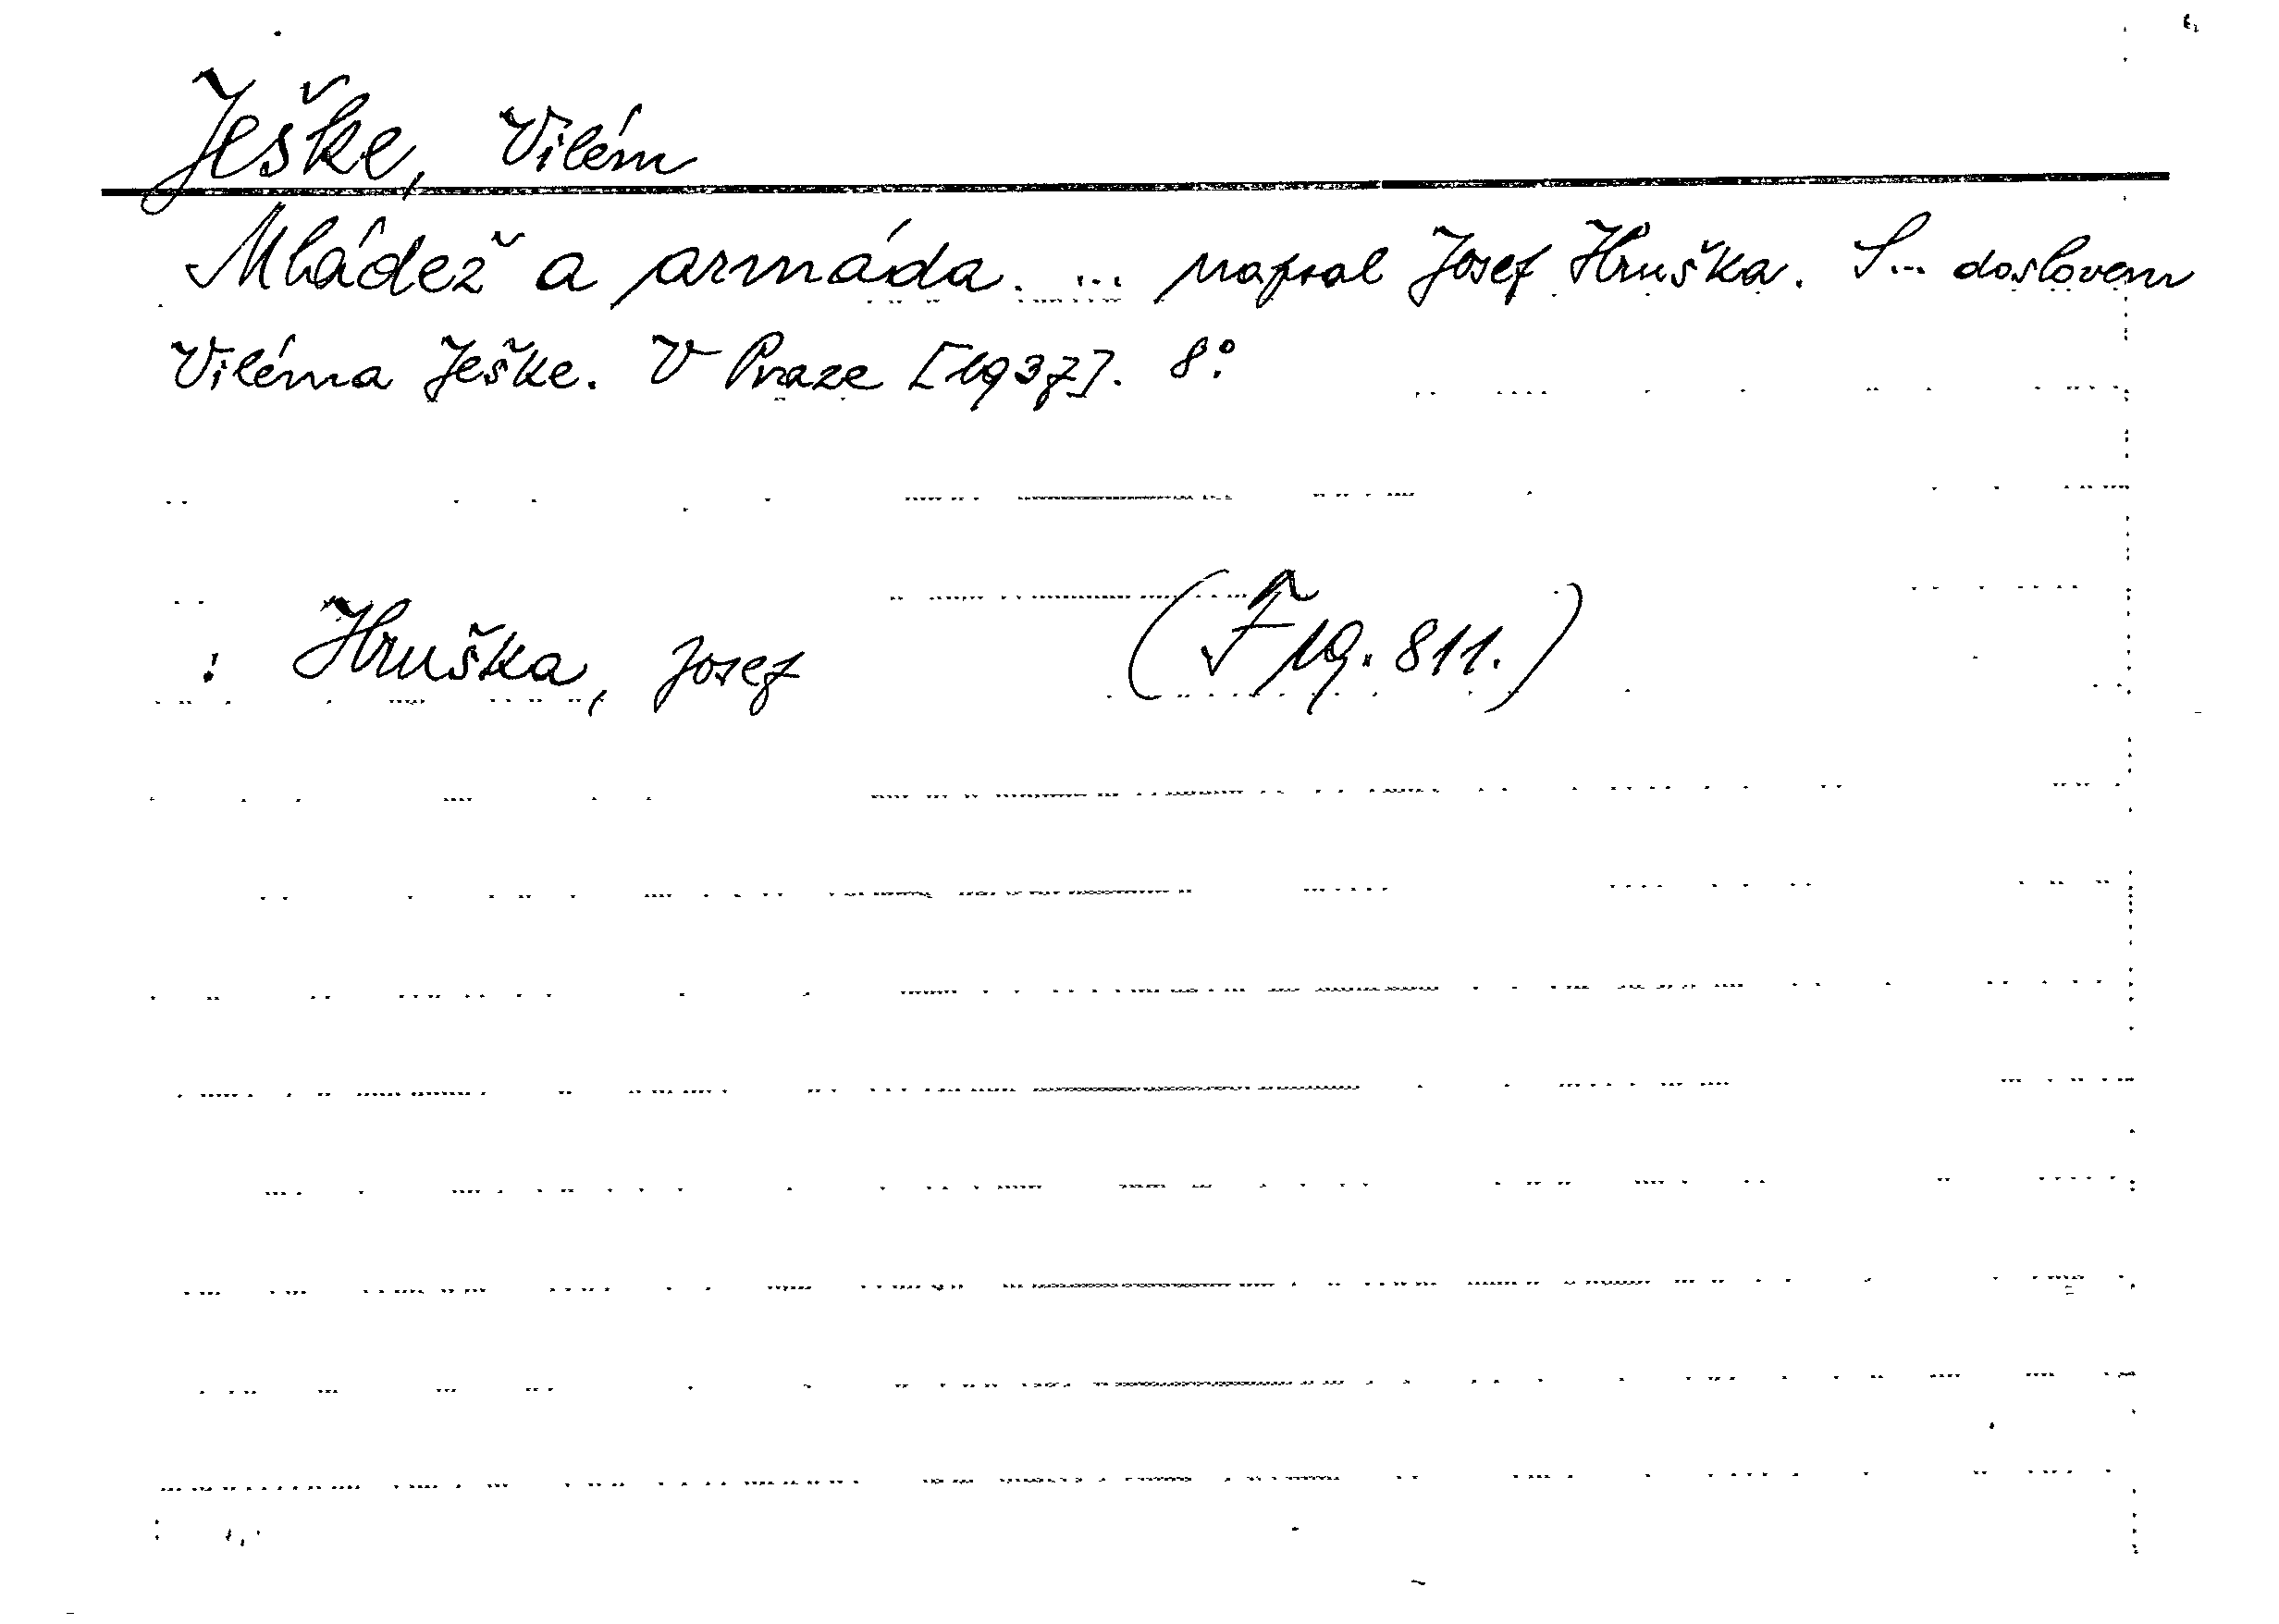 Ješke, Vilém
Mládež a armáda. ... napsal Josef Hruška. S... doslovem
Viléma Ješke. V Praze [1937]. 8°.
: Hruška, Josef (F 19.811.)